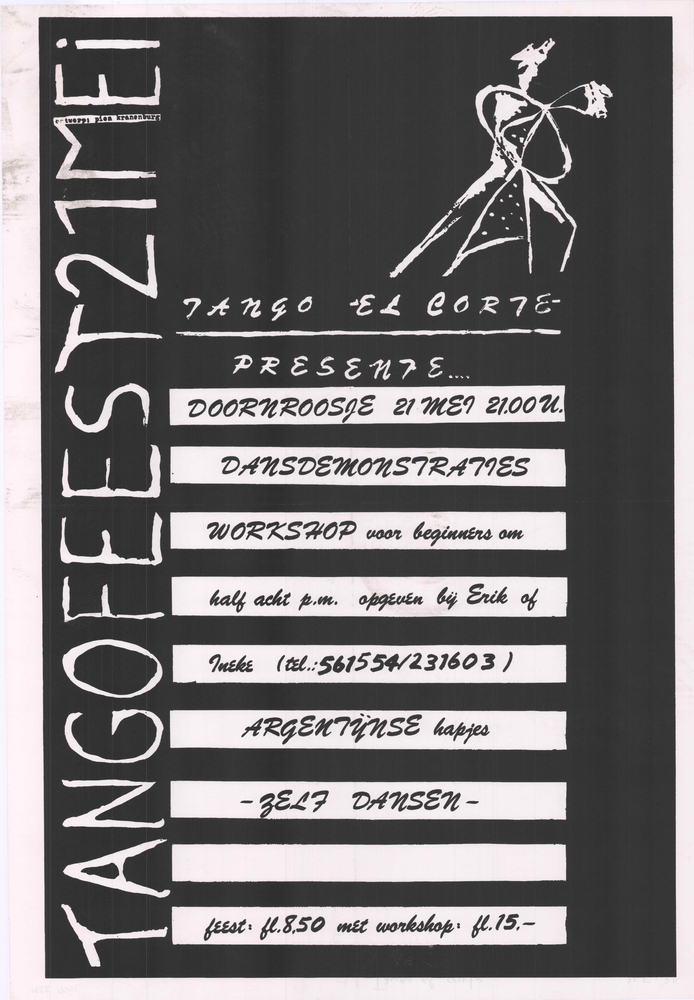 TANGOFEEST 21 MEi
ontwerp: pien kranenburg
TANGO EL CORTE
PRESENTE....
DOORNROOSJE 21 MEI 21.00 U.
DANSDEMONSTRATIES
WORKSHOP voor beginners om
half acht p.m. opgeven bij Erik of
Ineke (tel.: 561554/231603)
ARGENTIJNSE hapjes
- ZELF DANSEN -
feest: fl. 8,50 met workshop: fl. 15,-